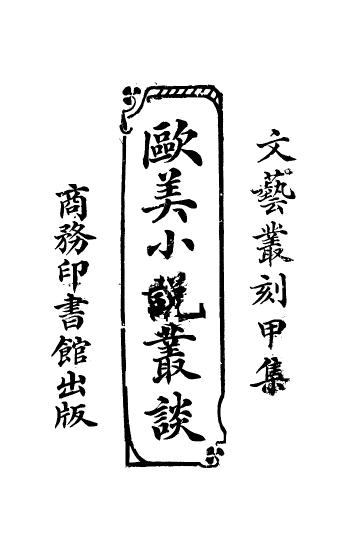 文藝叢刻甲集
歐美小說叢談
商務印書館出版